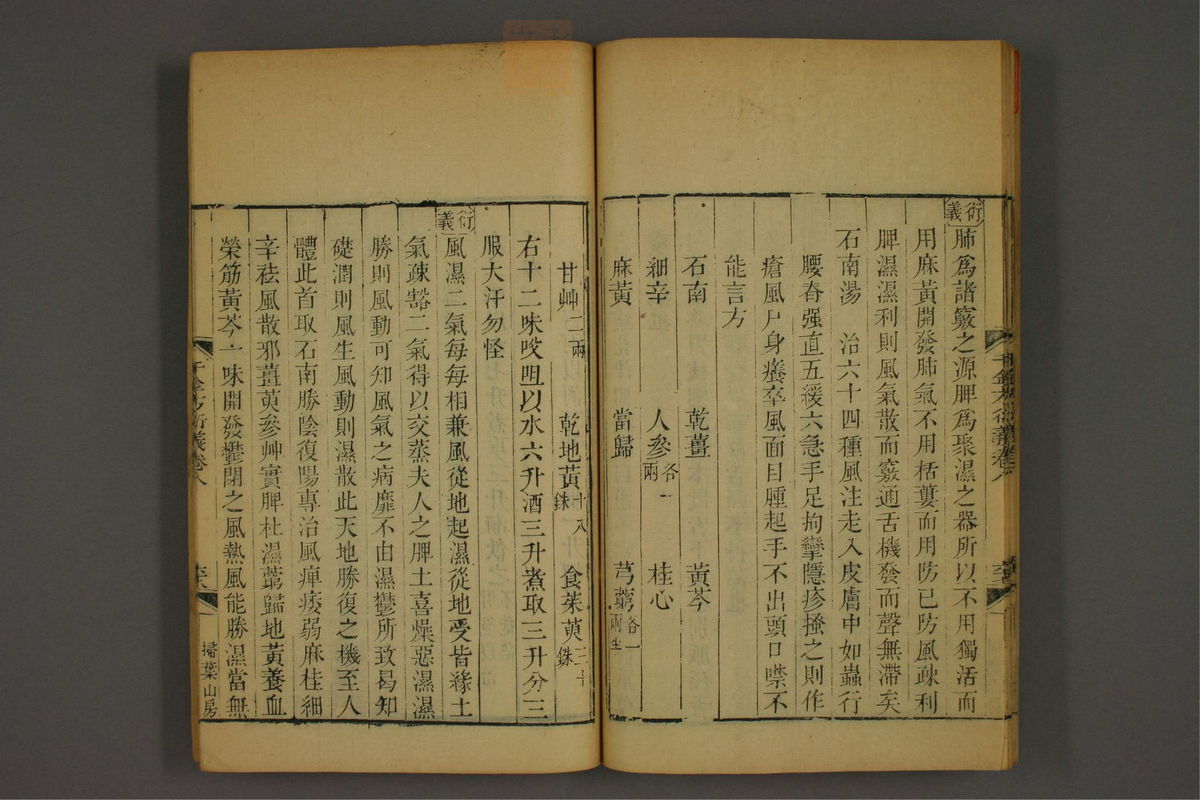 衍義
肺爲諸竅之源脾爲聚濕之器所以不用獨活而
用麻黃開發肺氣不用栝蔞而用防已防風疎利
脾濕濕利則風氣散而竅通舌機發而聲無滯矣
石南湯 治六十四種風注走入皮膚中如蟲行
腰脊强直五緩六急手足拘攣隱疹搔之則作
瘡風尸身癢卒風面目腫起手不出頭口噤不
能言方
石南 乾薑 黃芩
細辛 人參各一兩 桂心
麻黃 當歸 芎藭各一兩半
甘艸二兩 乾地黃十八銖 食茱萸三十銖
右十二味㕮咀以水六升酒三升煮取三升分三
服大汗勿怪
衍義
風濕二氣每每相兼風從地起濕從地受皆緣土
氣疎豁二氣得以交蒸夫人之脾土喜燥惡濕濕
勝則風動可知風氣之病靡不由濕鬱所致曷知
礎潤則風生風動則濕散此天地勝復之機至人
體此首取石南勝陰復陽專治風痺痿弱麻桂細
辛祛風散邪薑萸參艸實脾杜濕藭歸地黃養血
榮筋黃芩一味開發鬱閉之風熱風能勝濕當無
千金方衍義卷八
掃葉山房